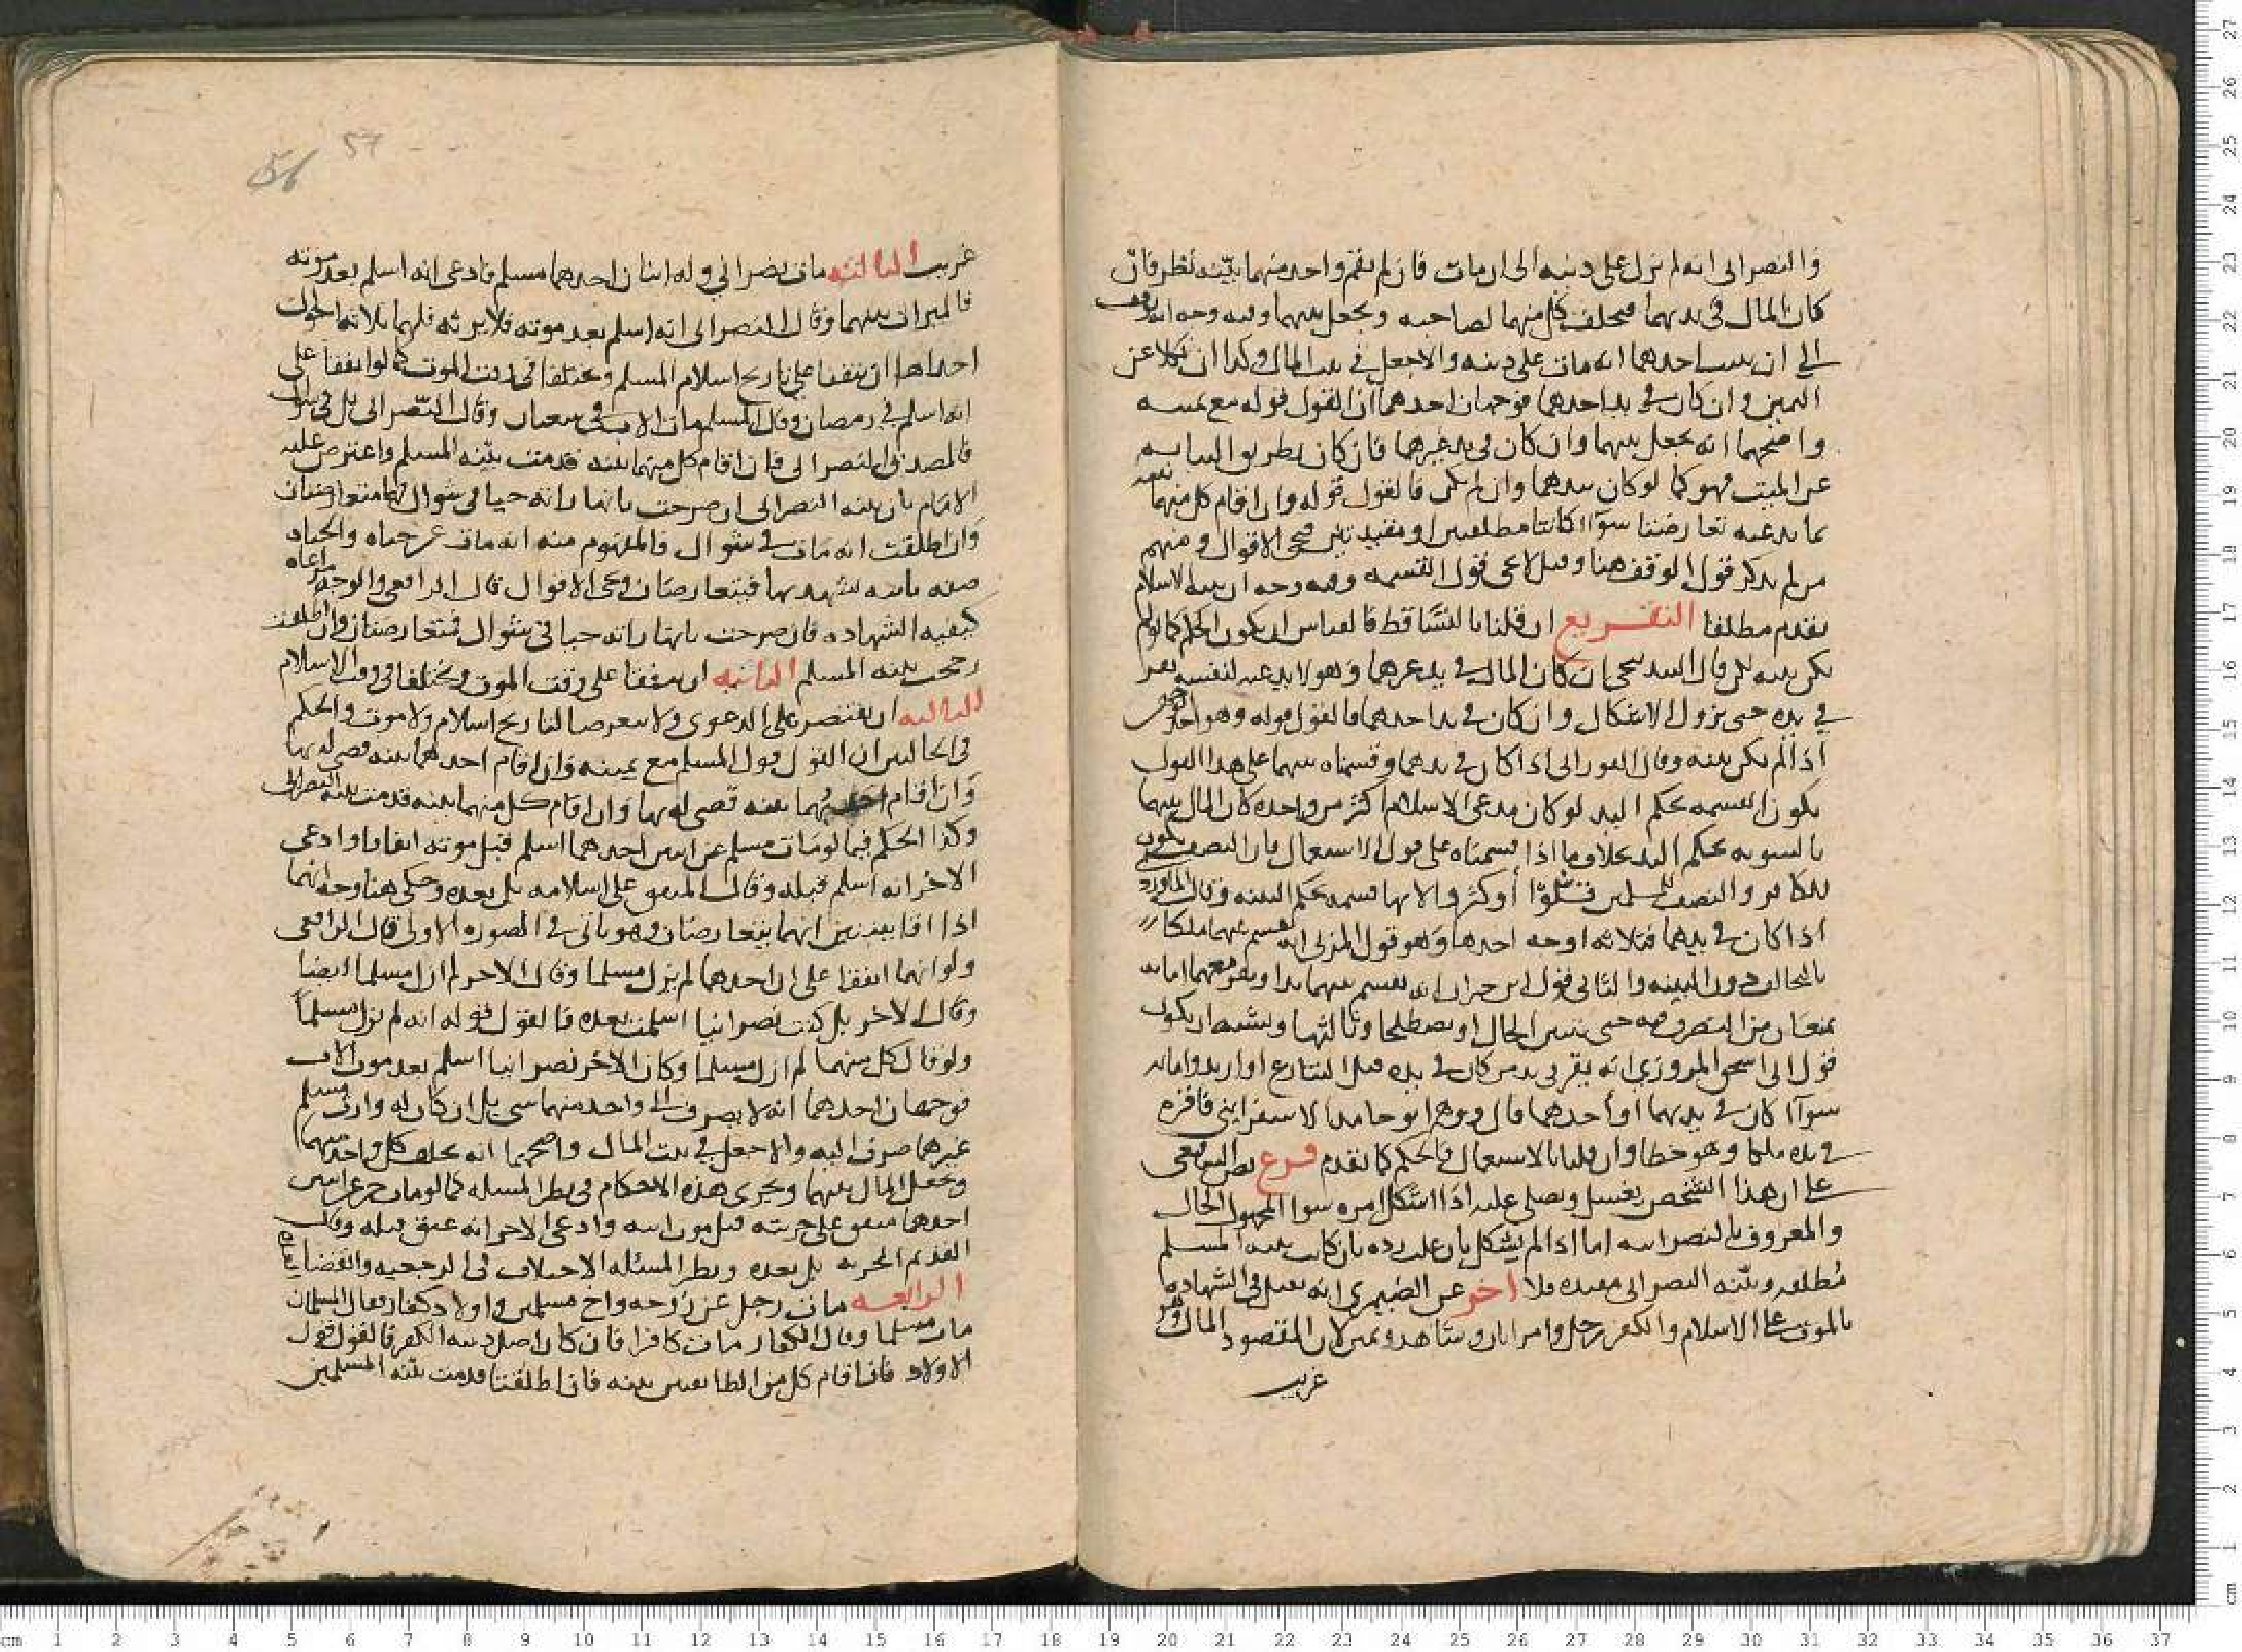 والنصراني انه لم يزل على دينه الى ان مات فان لم يقم واحد منهما بينة نظر فان
كان المال في يدهما فيحلف كل منهما لصاحبه ويجعل بينهما وفيه وجه انه يوقف
الى ان يبين احدهما انه مات على دينه والا جعل في بيت المال وكذا ان نكلا عن
اليمين وان كان في يد احدهما فوجهان احدهما ان القول قوله مع يمينه
واصحهما انه يجعل بينهما وان كان في يد غيرهما فان كان بطريق النيابة
عن الميت فهو كما لو كان بيدهما وان لم يكن فالقول قوله وان اقام كل منهما بينة
بما يدعيه تعارضتا سوآ اكانتا مطلقتين او مقيدتين فتجى الاقوال ومنهم
من لم يذكر قول الوقف هنا وقيل لا يجى قول القسمة وفيه وجه ان بينة الاسلام
تقدم مطلقا التفريع ان قلنا بالتساقط فالقياس ان يكون الحكم كما لو لم
يكن بينة لكن قال البندنيجي ان كان المال في يد غيرهما وهو لا يدعيه لنفسه يقر
في يده حتى يزول الاشكال وان كان في يد احدهما فالقول قوله وهو احد
اذا لم يكن بينة وقال الفوراني اذا كان في يدهما وقسمناه بينهما على هذا القول
يكون القسمة بحكم اليد لو كان مدعي الاسلام اكثر من واحد كان المال بينهما
بالسوية بحكم اليد بخلاف ما اذا قسمناه على قول الاستعمال فان النصف يكون
للكافر والنصف للمسلمين قلوا أو كثروا لانها قسمة بحكم البينة وقال الماوردي
اذا كان في يدهما فثلاثة اوجه احدها وهو قول المزني انه يقسم بينهما ملكا
بالتحالف دون البينة والثاني قول ابن خيران انه يقسم بينهما يدا ويقر معهما امانة
يمنعان من التصرف فيه حتى يتبين الحال او يصطلحا وثالثها ويشبه ان يكون
قول ابي اسحق المروزي انه يقر في يد من كان في يده قبل التنازع
سوآ اكان في يديهما او أحدهما قال ووهم ابو حامد الاسفرايني فاقره
في يده ملكا وهو خطا وان قلنا بالاستعمال فالحكم كما تقدم فرع نص الشافعي
على ان هذا الشخص يغسل ويصلى عليه اذا اشكل امره سوا المجهول الحال
والمعروف بالنصرانية اما اذا لم يشكل بان علم رده بان كانت بينة المسلم
مطلقة وبينة النصراني مقيدة فلا اخر عن الصيمري انه يقبل في الشهادة
بالموت على الاسلام والكفر رجل وامراتان وشاهد ويمين لان المقصود المال
غريب
57
56
غريب الثالثة مات نصراني وله ابنان احدهما مسلم فادعى انه اسلم بعد موته
فالميراث بينهما وقال النصراني انه اسلم بعد موته فلا يرثه فلهما ثلاثة احوال
احداها ان يتفقا على تاريخ اسلام المسلم ويختلفا في وقت الموت كما لو اتفقا على
انه اسلم في رمضان وقال المسلم مات الاب في شعبان وقال النصراني بل في شوال
فالمصدق النصراني فان اقام كل منهما بينة قدمت بينة المسلم واعترض عليه
الامام بان بينة النصراني ان صرحت بانها راته حيا في شوال فهما متعارضتان
وان اطلقت انه مات في شوال فالمفهوم منه انه مات عن حياة والحياة
صفة ثابتة تشهد بها فيتعارضان وتجى الاقوال قال الرافعي والوجه مراعاة
كيفية الشهادة فان صرحت بانها راته حيا في شوال فتتعارضتان وان اطلقت
رجحت بينة المسلم الثانية ان يتفقا على وقت الموت ويختلفا في وقت الاسلام
الثالثة ان يقتصر على الدعوى ولا يتعرضا لتاريخ اسلام ولا موت والحكم
في الحالتين ان القول قول المسلم مع يمينه وان اقام احدهما بينة قضي له بها
وان اقام احدهما بينة قضي له بها وان اقام كل منهما بينة قدمت بينة النصراني
وكذا الحكم فيما لو مات مسلم عن ابنين احدهما اسلم قبل موته اتفاقا وادعى
الاخر انه اسلم قبله وقال المتفق على اسلامه بل بعده وحكى هنا وجه انهما
اذا اقاما بينتين انهما يتعارضان وهو ياتي في الصورة الاولى قال الرافعي
ولو انهما اتفقا على ان احدهما لم يزل مسلما وقال الاخر لم ازل مسلما ايضا
وقال الاخر بل كنت نصرانيا اسلمت بعده فالقول قوله انه لم يزل مسلماً
ولو قال كل منهما لم ازل مسلما وكان الاخر نصرانيا اسلم بعد موت الاب
فوجهان احدهما انه لا يصرف الى واحد منهما شي بل ان كان له وارث مسلم
غيرهما صرف اليه والا جعل في بيت المال واصحهما انه يحلف كل واحد منهما
ويجعل المال بينهما ويجرى هذه الاحكام في نظر المسلة كما لو مات حر عن ابنين
احدهما متفق على حريته قبل موت ابيه وادعى الاخر انه عتق قبله وقال
القديم الحرية بل بعده ونظير المسئلة الاختلاف في الرجعة وانقضا
الرابعة مات رجل عن زوجة واخ مسلمين واولاد كفار فقال المسلمان
مات مسلما وقال الكفار مات كافرا فان كان اصل دينه الكفر فالقول قول
الاولاد فان اقام كل من الطائفتين بينة فان اطلقتا قدمت بينة المسلمين